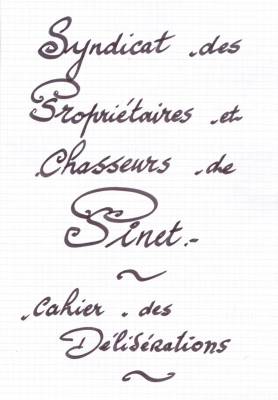 Syndicat des
Propriétaires et
Chasseurs de
Pinet.-
Cahier des
Délibérations